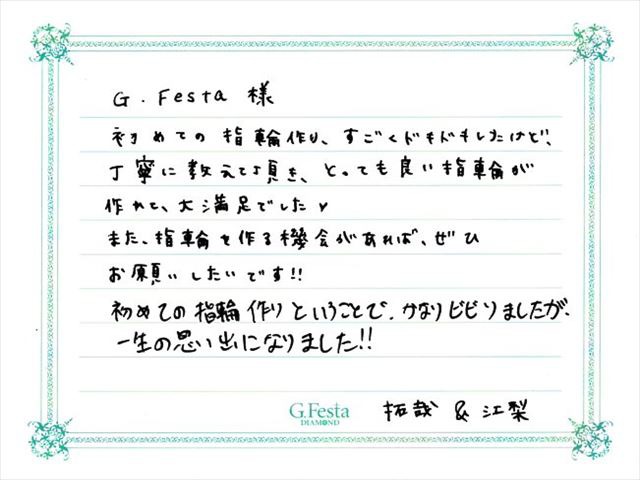 G.Festa 様
初めての指輪作り、すごくドキドキしたけど、
丁寧に教えて頂き、とっても良い指輪が
作れて、大満足でした♥
また、指輪を作る機会があれば、ぜひ
お願いしたいです!!
初めての指輪作りということで、かなりビビりましたが、
一生の思い出になりました!!
G.Festa
DIAMOND
拓哉 & 江梨